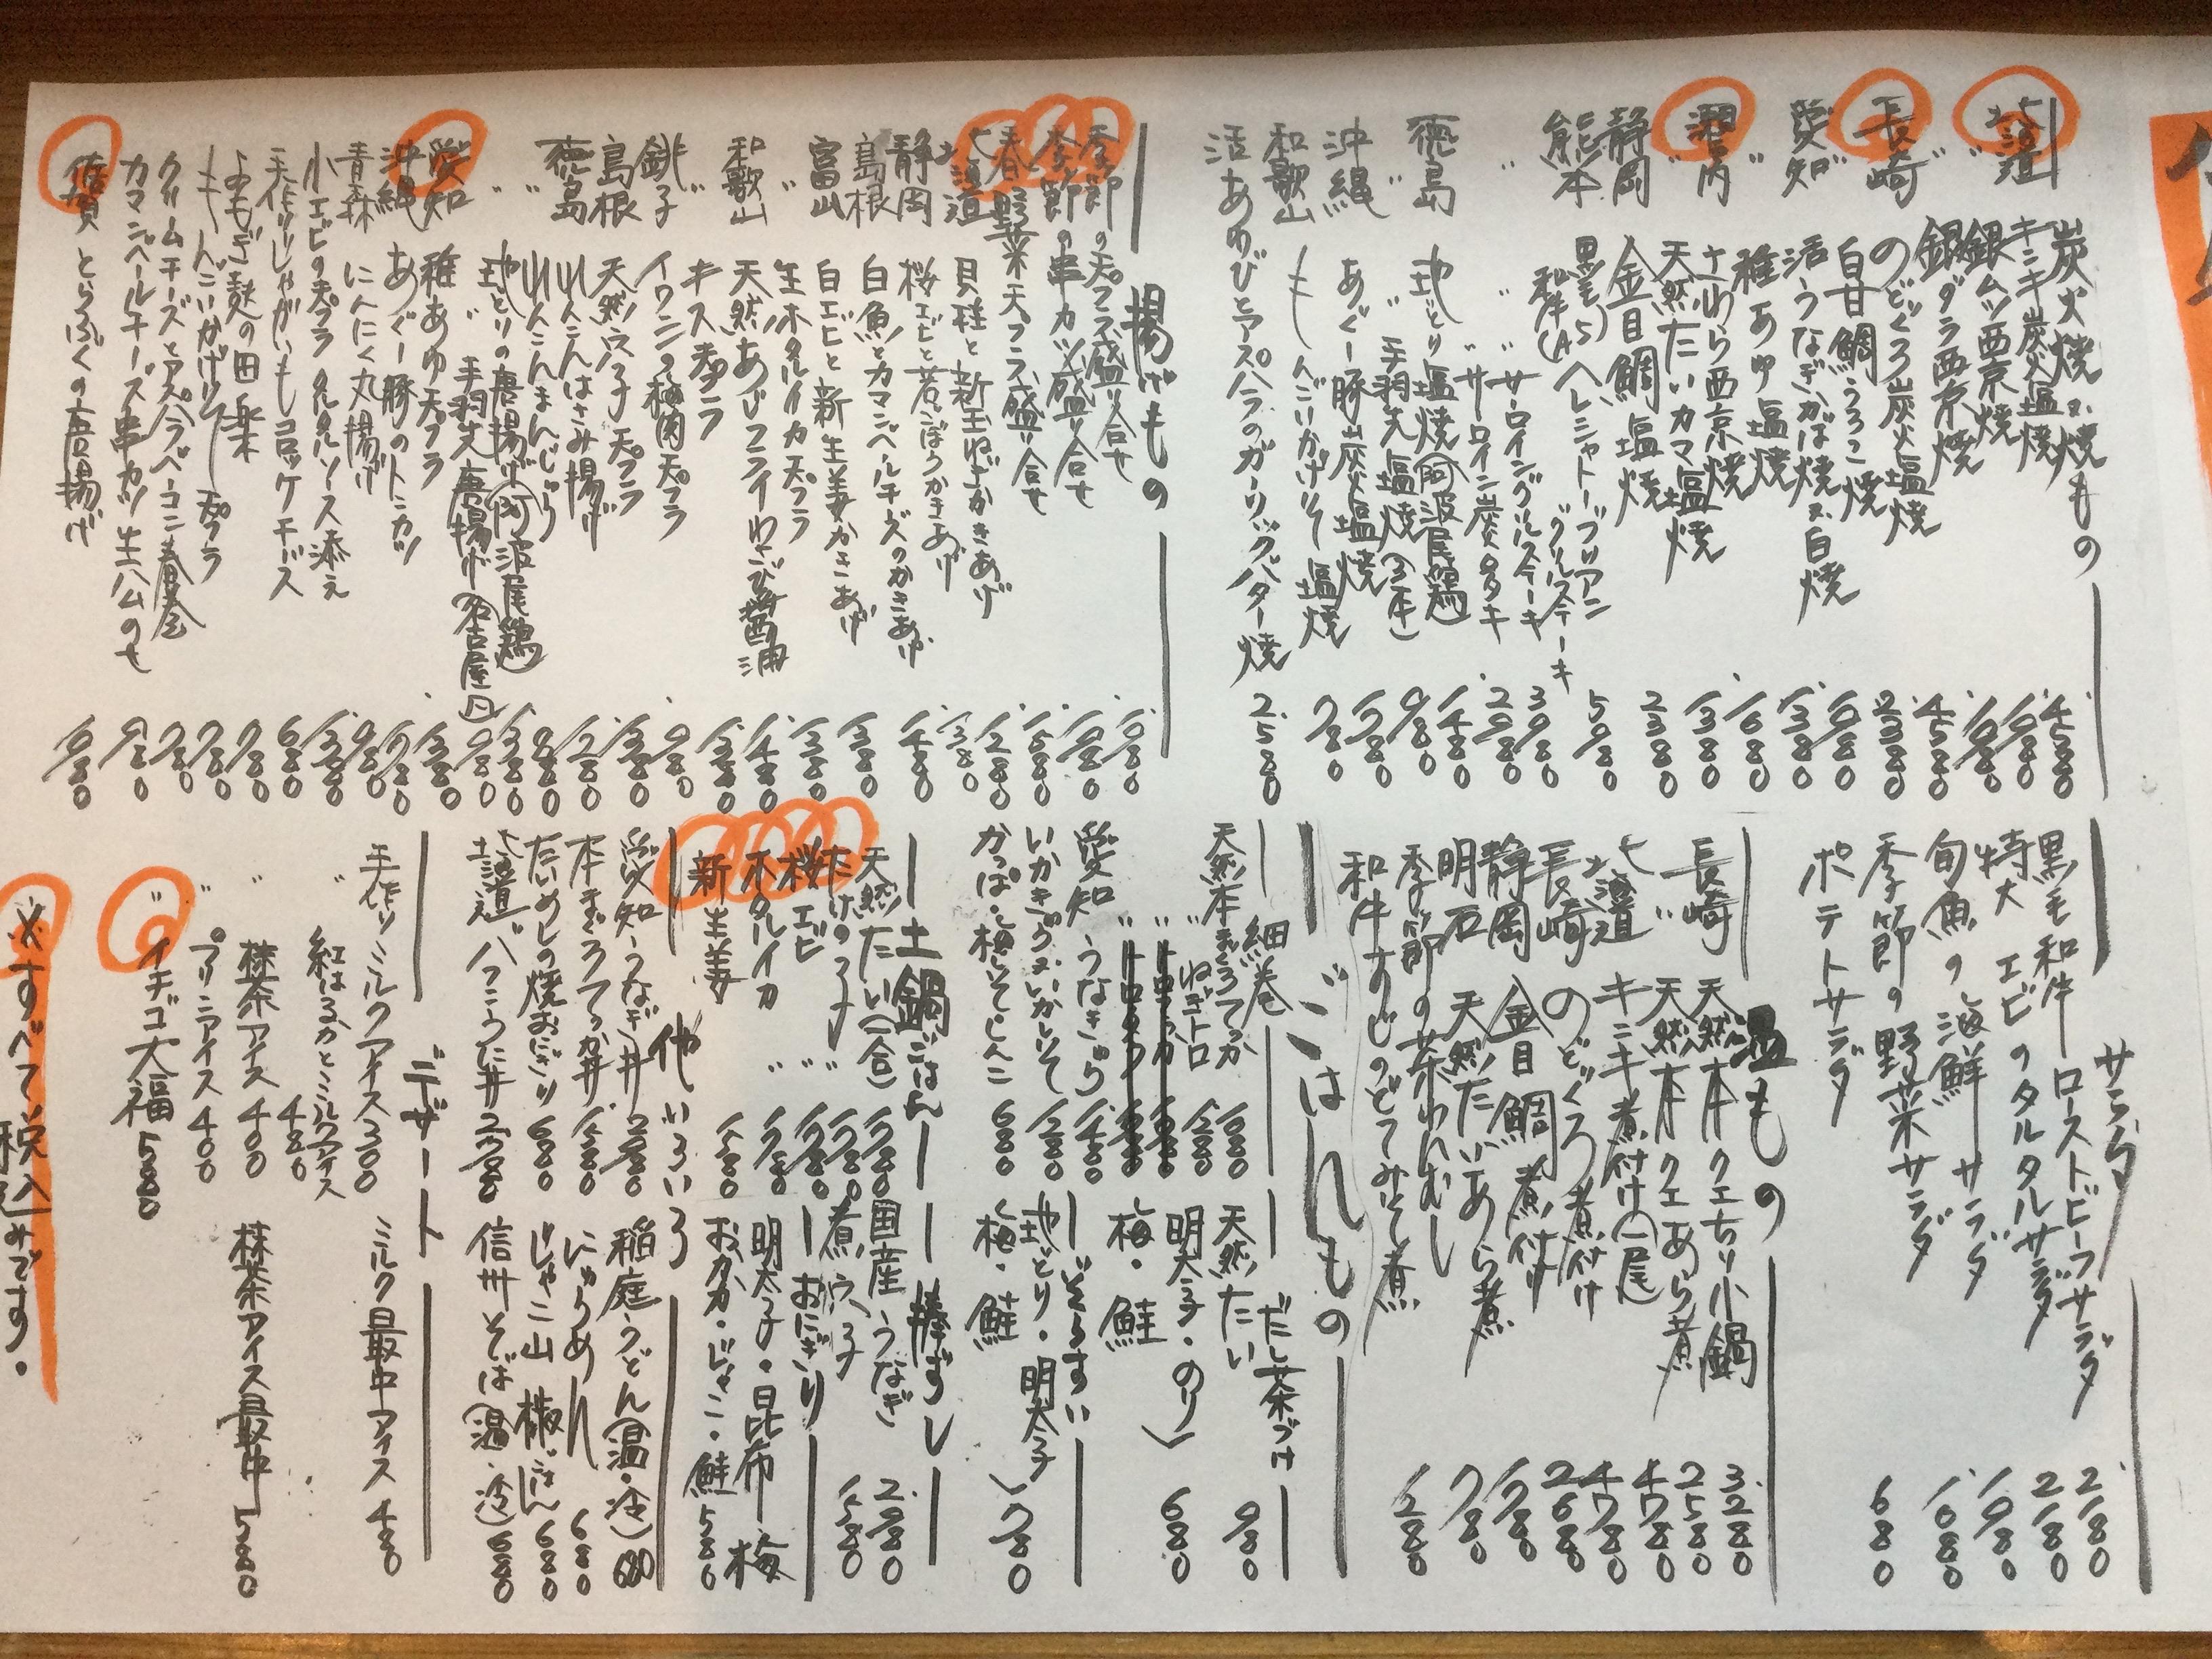 炭火焼又は焼もの
北海道 キンキ炭火塩焼 4580
〃 銀ムツ西京焼 1980
銀ダラ西京焼 1980
長崎 のどぐろ炭火塩焼 4580
〃 白甘鯛うろこ焼 2380
愛知 活うなぎかば焼又白焼
〃 稚あゆ塩焼
さわら西京焼 1680
天然たいカマ塩焼 1380
静岡 金目鯛塩焼 2380
熊本 黒毛和牛(A5)ヘレシャトーブリアン
〃 グリルステーキ 5980
〃 サーロイングリルステーキ 3980
〃 サーロイン炭タタキ 2980
徳島 地どり塩焼(阿波尾鶏) 1480
〃 手羽先塩焼(3本) 980
沖縄 あぐー豚炭火塩焼 1780
和歌山 もんごいかげそ塩焼 780
活あわびとアスパラのガーリックバター焼 2580
揚げもの
季節の天プラ盛り合せ
季節の串カツ盛り合せ
春野菜天プラ盛り合せ
北海道 貝柱と新玉ねぎかきあげ
静岡 桜エビと若ごぼうかきあげ
島根 白魚とカマンベールチーズのかきあげ
富山 白エビと新生姜かきあげ
〃 生ホタルイカ天プラ
和歌山 天然あじフライわさび醤油
〃 キス天プラ
銚子 イワシの梅肉天プラ
島根 天然穴子天プラ
徳島 れんこんはさみ揚げ
〃 れんこんまんじゅう
〃 地どりの唐揚げ(阿波尾鶏)
〃 手羽先唐揚げ(名古屋風)
愛知 稚あゆ天プラ
沖縄 あぐー豚のトンカツ
青森 にんにく丸揚げ
小エビの天プラ タルタルソース添え
手作りじゃがいもコロッケチーズ
よもぎ麸の田楽
もんごいかげそ天プラ
クリームチーズとアスパラベーコン春巻
カマンベールチーズ串カツ 生ハムのせ
佐賀 とらふぐの唐揚げ
サラダ
黒毛和牛ローストビーフサラダ 2180
特大エビのタルタルサラダ 2180
旬魚の海鮮サラダ 1980
季節の野菜サラダ 1680
ポテトサラダ 680
温もの
長崎 天然本クエちり小鍋 3280
〃 天然本クエあら煮 2580
北海道 キンキ煮付け(一尾) 4780
長崎 のどぐろ煮付け 4780
静岡 金目鯛煮付け 2680
明石 天然たいあら煮 1780
季節の茶わんむし 780
和牛すじのどてみそ煮 1280
ごはんもの
細巻
天然本まぐろてっか 1680
〃 ねぎトロ 1280
愛知 うなきゅう 1480
いかきゅう又いかしそ 1280
かっぱ・梅しそ・しんこ 680
だし茶づけ
天然たい 980
明太子・のり
梅・鮭 680
ぞうすい
地どり・明太子
梅・鮭 780
土鍋ごはん
天然たい(一合) 1780
木けの子 〃 1780
桜エビ 〃 1780
ホタルイカ 〃 1780
新生姜 1580
棒ずし
国産うなぎ 2980
煮穴子 1580
おにぎり
明太子・昆布・梅
おかか・じゃこ・鮭 580
他いろいろ
愛知 うなぎ丼 2980
本まぐろてっか丼
たいめしの焼おにぎり 680
北海道 バフンうに丼 2780
稲庭うどん(温・冷) 680
にゅうめん 680
じゃこ山椒ごはん 680
信州そば(温・冷) 680
デザート
手作りミルクアイス 300
〃 紅はるかとミルクアイス 480
〃 抹茶アイス 400
〃 プリンアイス 400
〃 イチゴ大福 580
ミルク最中アイス 480
抹茶アイス最中 580
※すべて税込みです。